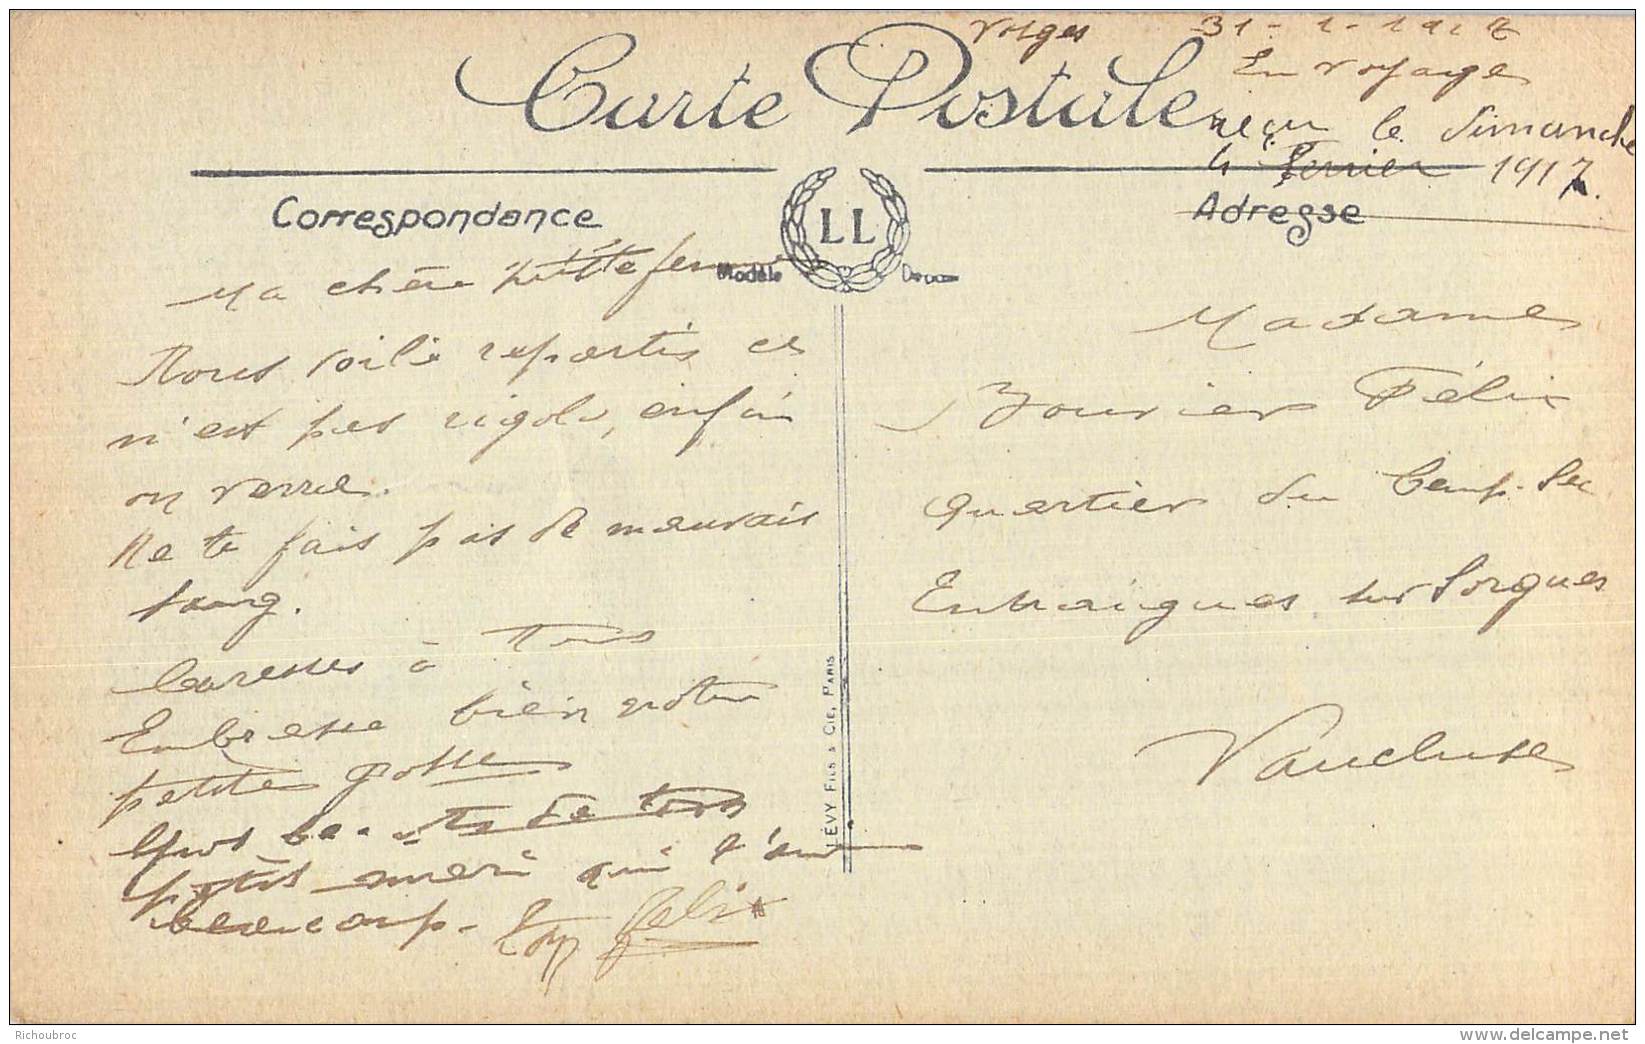 Vosges 31-1-1917
En voyage
Carte Postale
reçu le dimanche
4 Fevrier 1917.
Correspondance
LL
Adresse
Modèle
Ma chère petite femme
Nous voilà repartis ce
n'est pas rigolo, enfin
on verra.
Ne te fais pas de mauvais
sang.
Caresses à Tous
Embresse bien notre
petite gosse
Gros de ton
petit mari qui t'aime
beaucoup. Ton Felix
LÉVY FILS & CIE, PARIS
Madame
Bouvier Félix
quartier du Camp. Sec
Entraigues sur Sorgues
Vaucluse
Richoubroc
www.delcampe.net